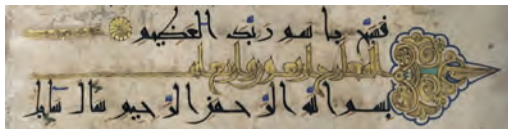 فسبح باسم ربك العظيم
المعارج اربعون واربع
بسم الله الرحمن الرحيم سأل سائل